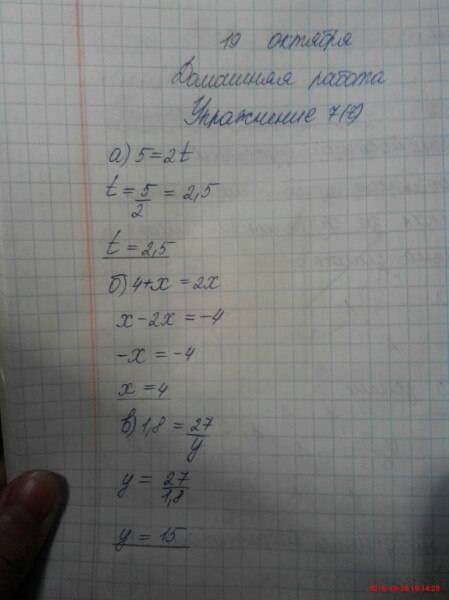 19 октября
Домашняя работа
Упражнение 7(2)
а) 5=2t
t = 5/2 = 2,5
t = 2,5
б) 4+x = 2x
x - 2x = -4
-x = -4
x = 4
в) 1,8 = 27/y
y = 27/1,8
y = 15